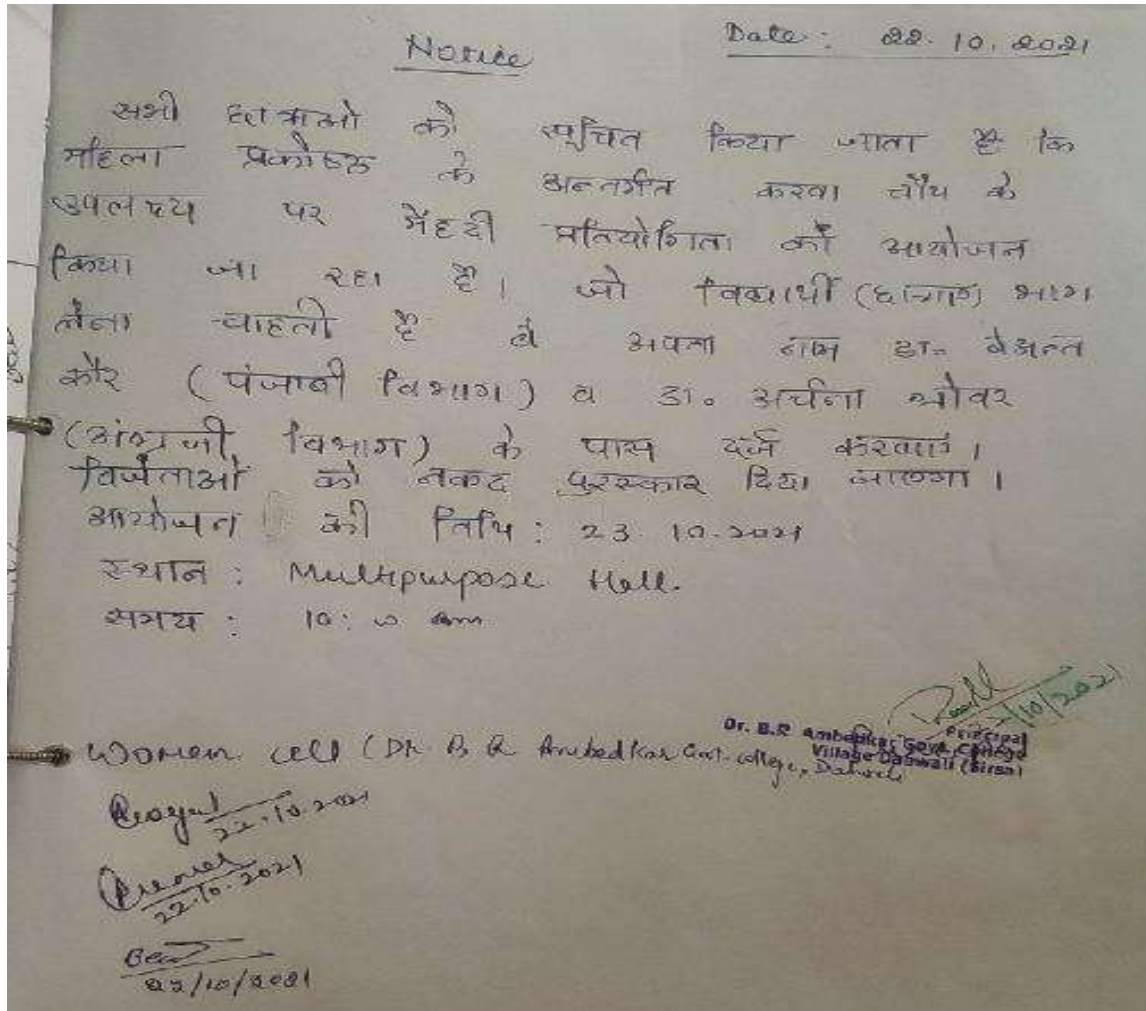 Notice
Date: 22.10.2021
सभी छात्राओ को सूचित किया जाता है कि
महिला प्रकोष्ठ के अन्तर्गत करवा चौथ के
उपलक्ष्य पर मेंहदी प्रतियोगिता का आयोजन
किया जा रहा है। जो विद्यार्थी (छात्राएं) भाग
लेना चाहती है वे अपना नाम डा० बेअन्त
कौर (पंजाबी विभाग) व डा० अर्चना ग्रोवर
(अंग्रेजी विभाग) के पास दर्ज करवाएं।
विजेताओं को नकद पुरस्कार दिया जाएगा।
आयोजन की तिथि: 23.10.2021
स्थान: Multipurpose Hall.
समय: 10:00 am
Principal
Dr. B.R Ambedkar Govt. College
Village Dabwali (Sirsa)
Women cell (Dr. B R Ambedkar Govt. college, Dabwali
22.10.2021
22.10.2021
22/10/2021